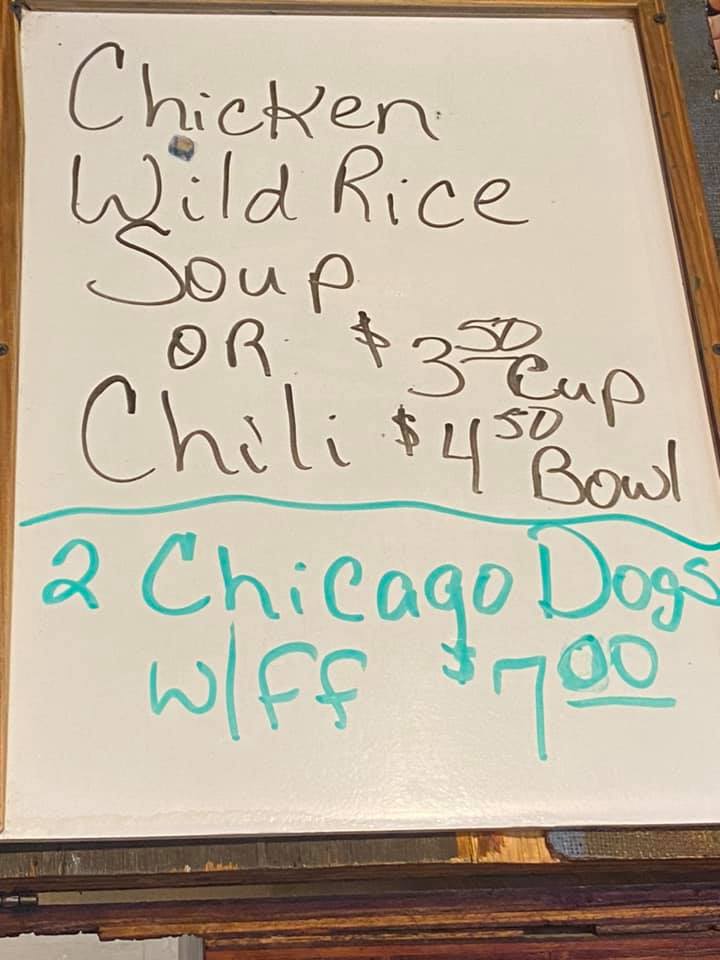 Chicken
Wild Rice
Soup
OR $3.50 Cup
Chili $4.50 Bowl
2 Chicago Dogs
w/ff $7.00